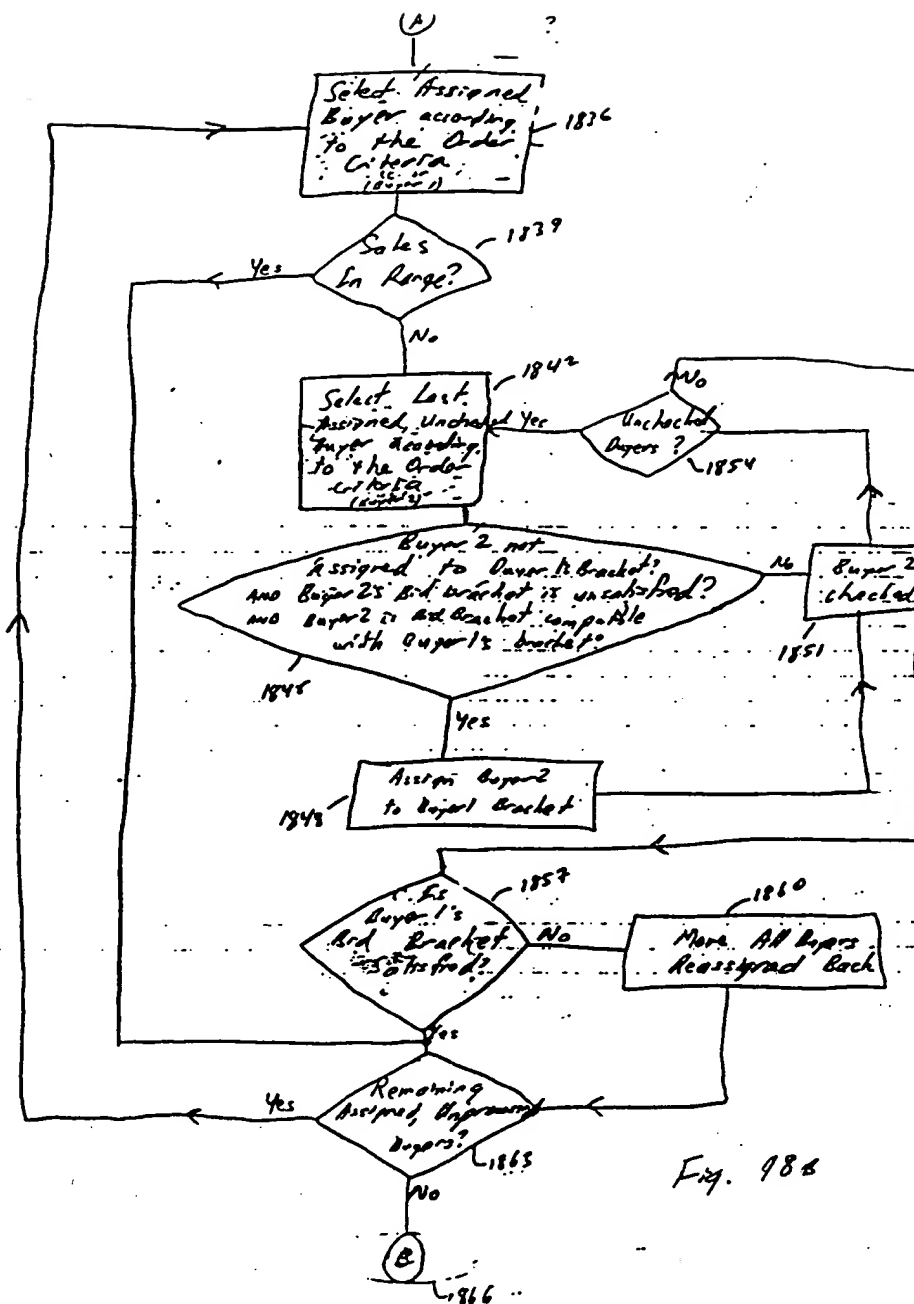 A
Select Assigned
Buyer according
to the Order
Criteria
(Buyer 1)
1836
Sales
In Range?
1839
Yes
No
Select Last
Assigned, Unchecked
Buyer According
to the Order
Criteria
(Buyer 2)
1842
Yes
Unchecked
Buyers?
No
1854
Buyer 2 not
Assigned to Buyer 1's Bracket?
AND Buyer 2's Bid Bracket is unsatisfied?
AND Buyer 2 is Bid Bracket
with Buyer 1's bracket?
No
Buyer 2
checked
1851
Yes
Assign Buyer 2
to Buyer 1 Bracket
1848
Is
Buyer 1's
Bid Bracket
Satisfied?
1857
No
Move All Buyers
Reassigned Back
1860
Yes
Remaining
Assigned,
Buyers?
1863
Yes
No
B
1866
Fig. 98B